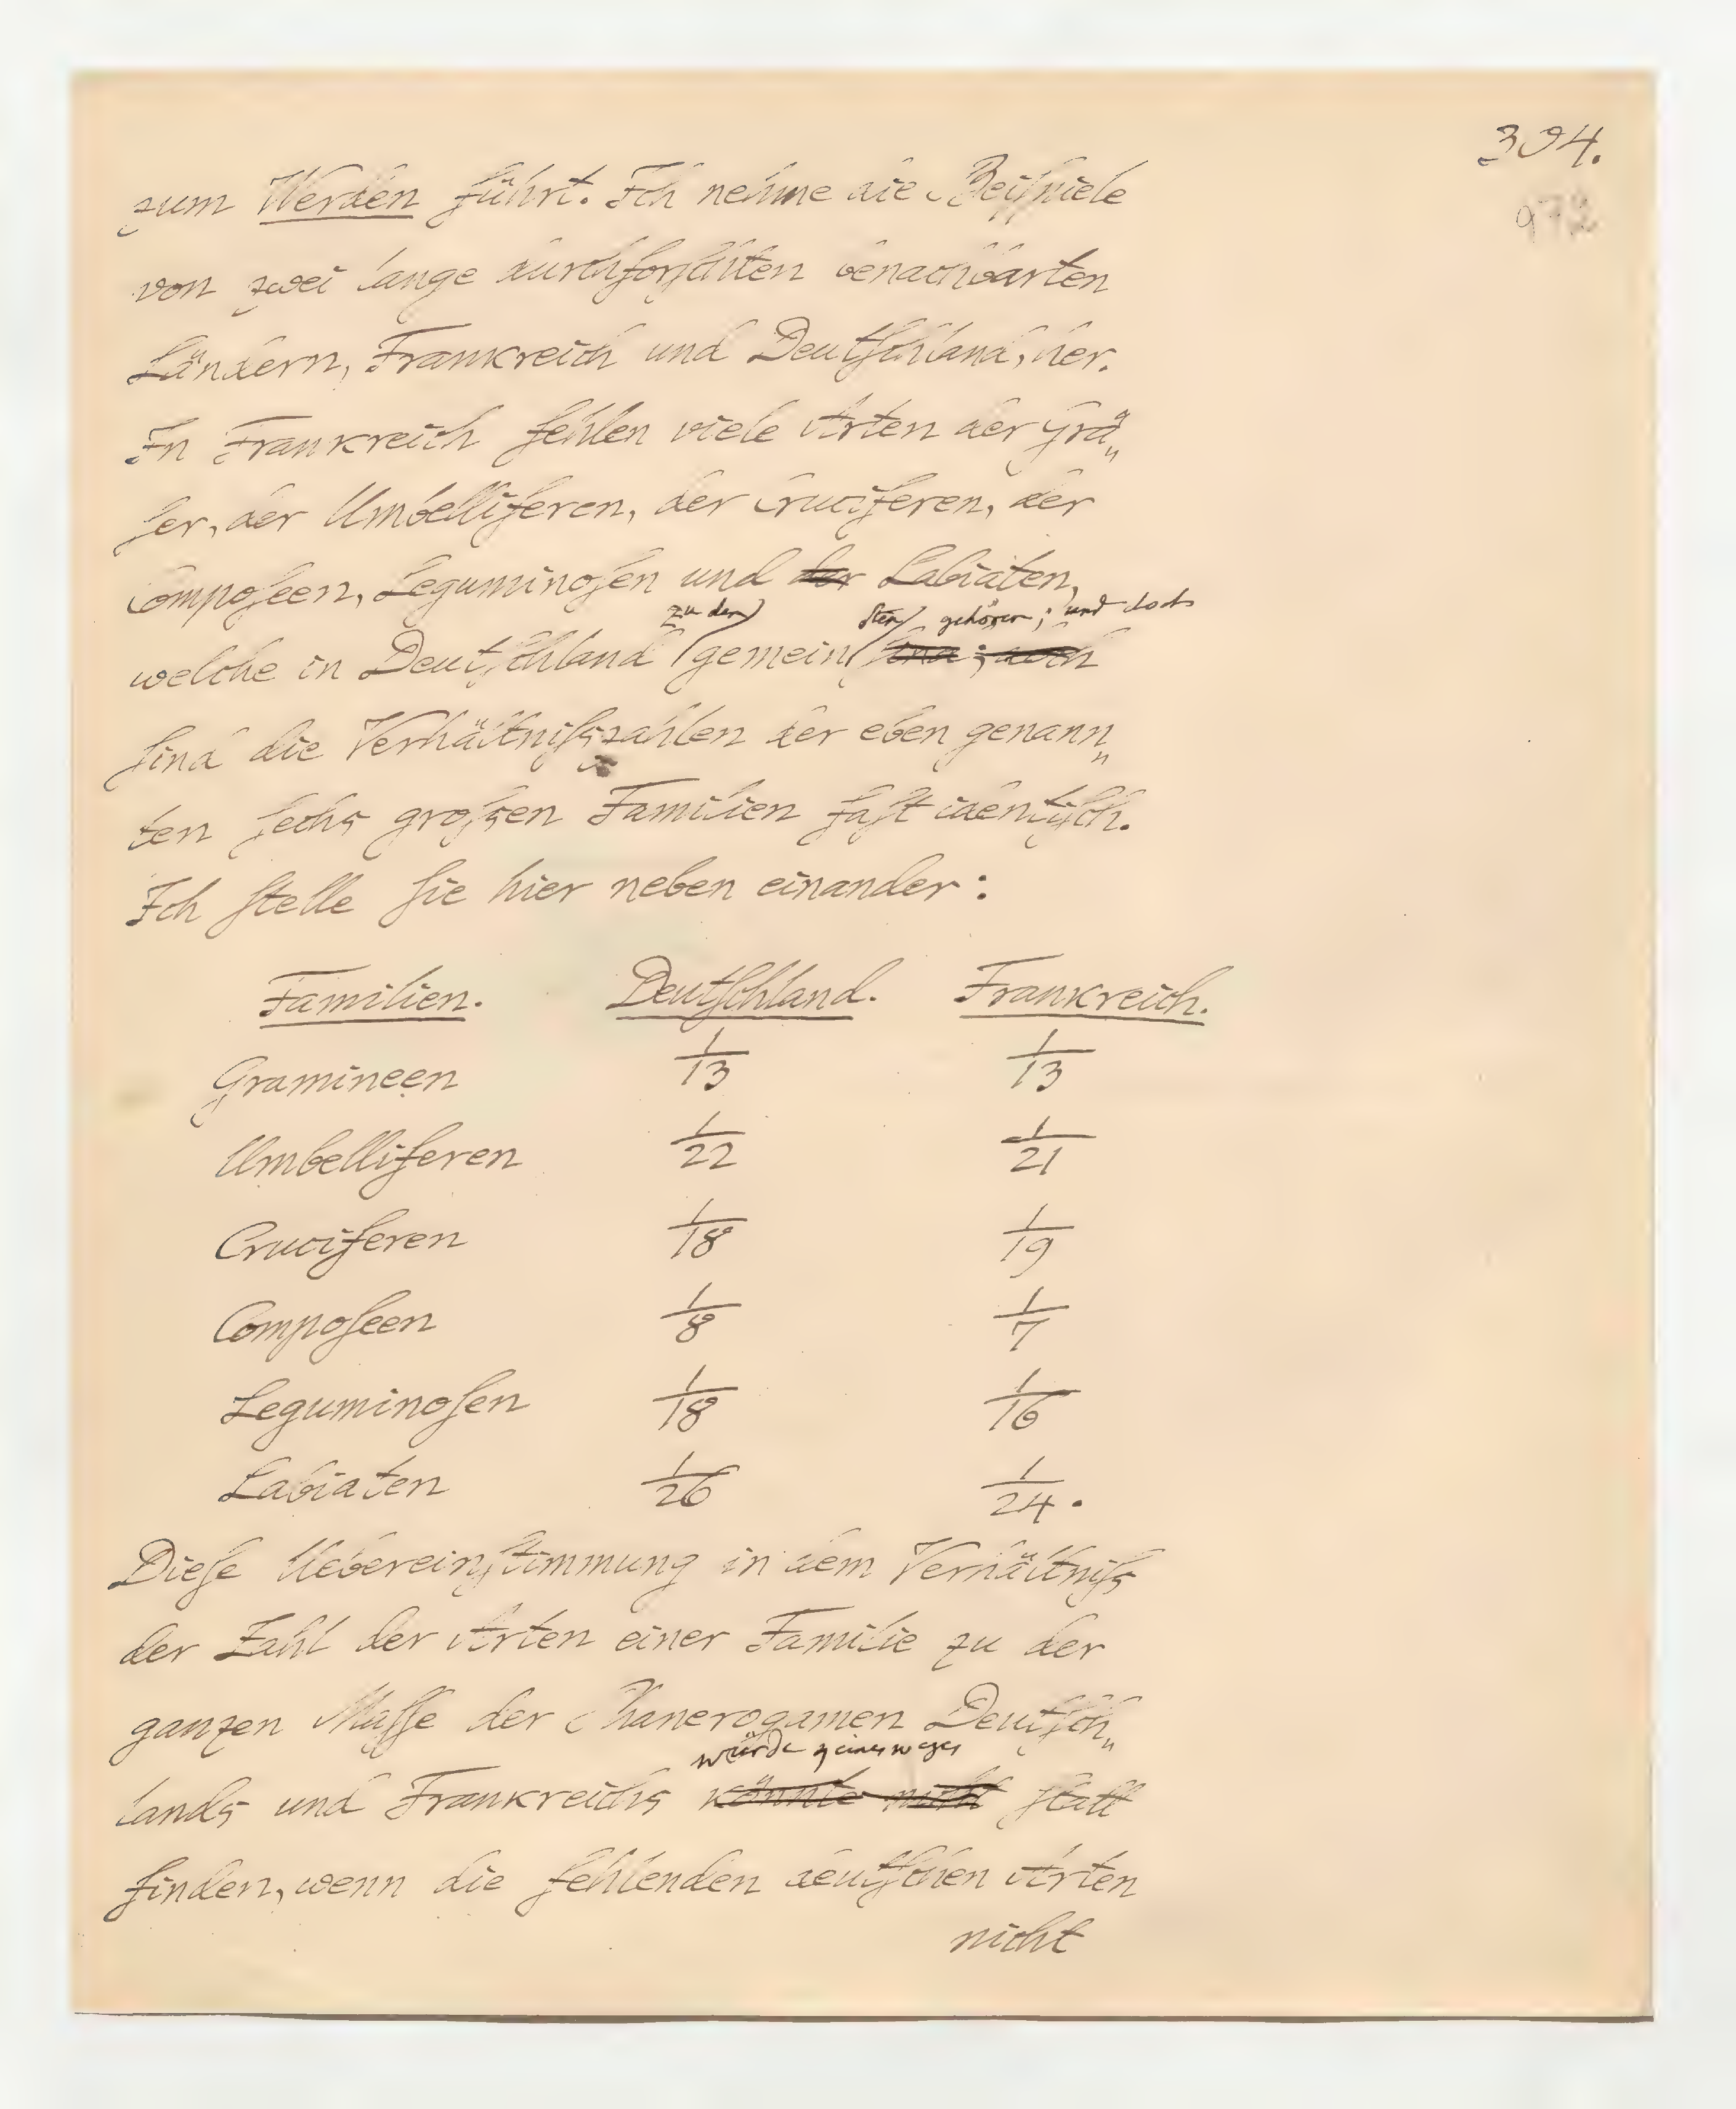 394.
972
zum Werden führt. Ich nehme die Beiſpiele
von zwei lange durchforſchten benachbarten
Ländern, Frankreich und Deutſchland, her.
In Frankreich fehlen viele Arten der Grä„
ſer, der Umbelliferen, der Cruciferen, der
Compoſeen, Leguminoſen und der Labiaten,
zu den ſten gehören; und doch
welche in Deutſchland gemein ſind; doch
ſind die Verhältniſszahlen der eben genann„
ten ſechs groſsen Familien faſt identiſch.
Ich ſtelle ſie hier neben einander:
Familien. Deutſchland. Frankreich.
Gramineen 1/13 1/13
Umbelliferen 1/22 1/21
Cruciferen 1/18 1/19
Compoſeen 1/8 1/7
Leguminoſen 1/18 1/16
Labiaten 1/26 1/24.
Dieſe Uebereinſtimmung in dem Verhältniſs
der Zahl der Arten einer Familie zu der
ganzen Maſſe der Phanerogamen Deutſch„
würde keinesweges
lands und Frankreichs könnte nicht ſtatt
finden, wenn die fehlenden deutſchen Arten
nicht